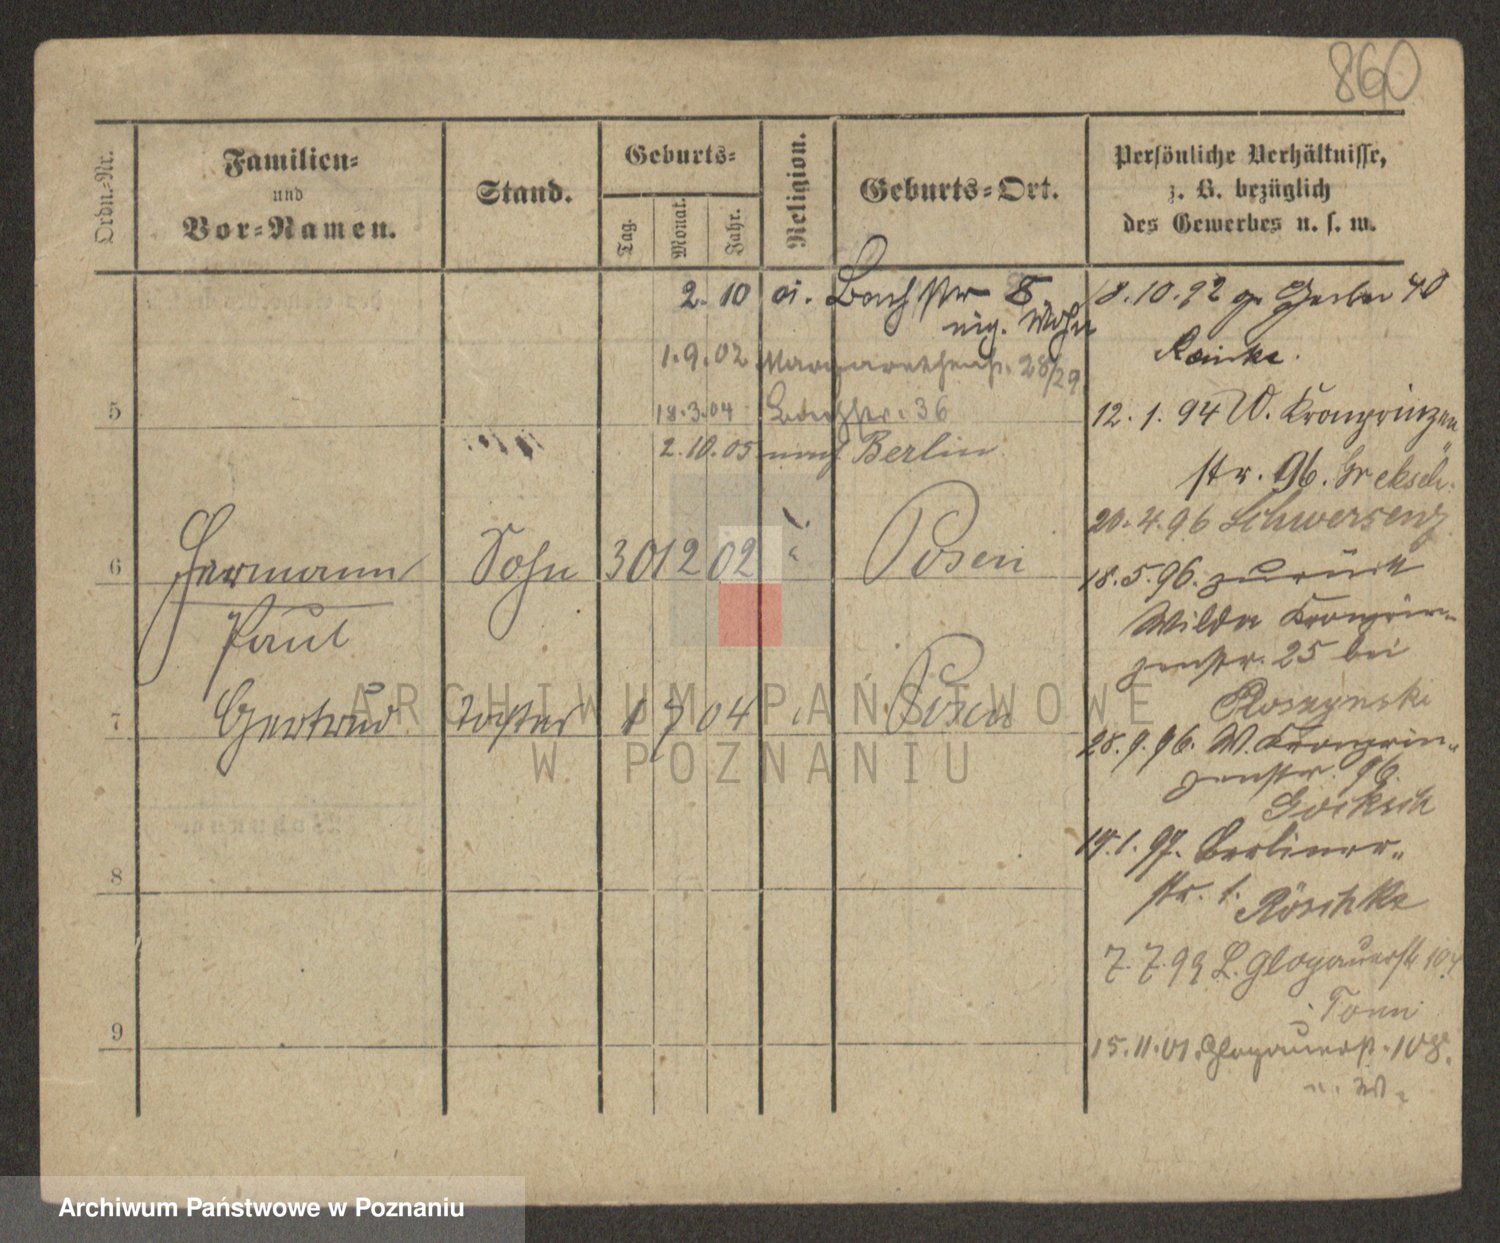 860
Ordn.-Nr.
Familien-
und
Vor-Namen.
Stand.
Geburts-
Tag.
Monat.
Jahr.
Religion.
Geburts-Ort.
Persönliche Verhältnisse,
z. B. bezüglich
des Gewerbes u. s. w.
2. 10 01. Bachstr 8
eig. Wohn
1.9.02 Margarethenstr. 28/29
18.3.04 Bachstr. 36
2.10.05 nach Berlin
5
6 Hermann Sohn 30 12 02 " Posen
Paul
7 Gertrud Tochter 1 7 04 Posen
8
9
8.10.92 Gerber 40
Reinke.
12.1.94 W. Kronprinzen
str. 96.
20.4.96 Schwersenz
18.5.96. zurück
Wilda Kronprin-
zenstr. 25 bei
28.9.96. W. Kronprin-
zenstr. 96.
19.1.97. Berliner-
str. 1. Röschke
7.7.99 L. Glogauerstr 104
Tonn
15.11.01. Glogauerstr. 108.
ARCHIWUM PAŃSTWOWE
W POZNANIU
Archiwum Państwowe w Poznaniu